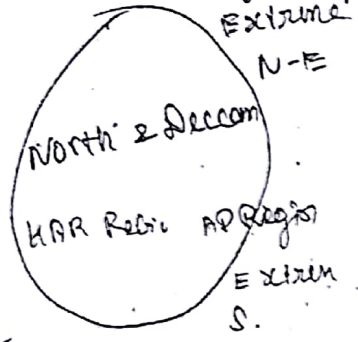 Extreme
N-E
North & Deccam
KAR Regio AP Region
Extrem
S.